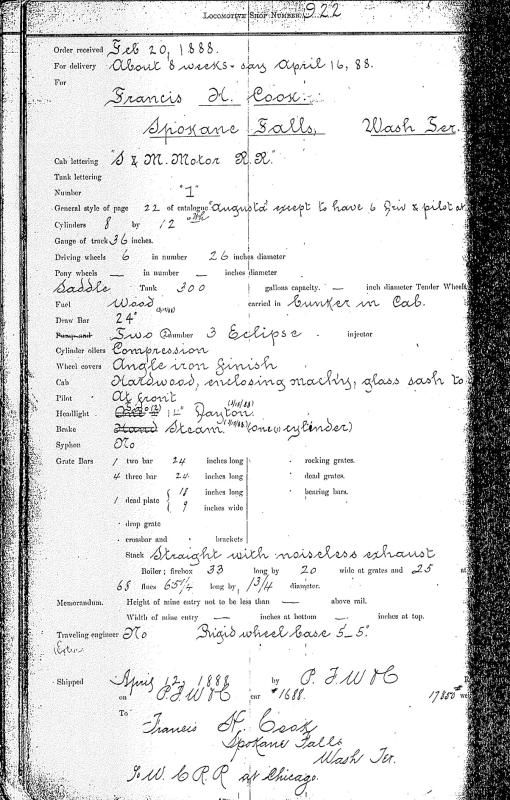 Locomotive Shop Number 922
Order received Feb 20, 1888.
For delivery About 8 weeks - say April 16, 88.
For
Francis H. Cook.
Spokane Falls, Wash Ter.
Cab lettering "S & M. Motor R.R."
Tank lettering
Number "1"
General style of page 22 of catalogue "Augusta" except to have 6 driv & pilot at
Cylinders 8 by 12
Gauge of track 36 inches.
Driving wheels 6 in number 26 inches diameter
Pony wheels — in number — inches diameter
Saddle Tank 300 gallons capacity. — inch diameter Tender Wheels
Fuel Wood carried in bunker in Cab.
Draw Bar 24"
Two number 3 Eclipse injector
Cylinder oilers Compression
Wheel covers Angle iron finish
Cab Hardwood, enclosing machry, glass sash to
Pilot At front
Headlight 14" Dayton (3/10/88)
Brake Hand Steam (one cylinder)
Syphon No
Grate Bars 1 two bar 24 inches long rocking grates.
4 three bar 24 inches long dead grates.
1 dead plate { 18 inches long bearing bars.
9 inches wide
drop grate
crossbar and brackets
Stack Straight with noiseless exhaust
Boiler; firebox 33 long by 20 wide at grates and 25 at
68 flues 65 1/4 long by 1 3/4 diameter.
Memorandum. Height of mine entry not to be less than — above rail.
Width of mine entry — inches at bottom — inches at top.
Traveling engineer No Rigid wheel base 5-5"
Shipped April 12, 1888 by P. F W & C R
on P. F W & C car #1688. 17850# we
To
Francis H. Cook
Spokane Falls
Wash Ter.
C R R at Chicago.